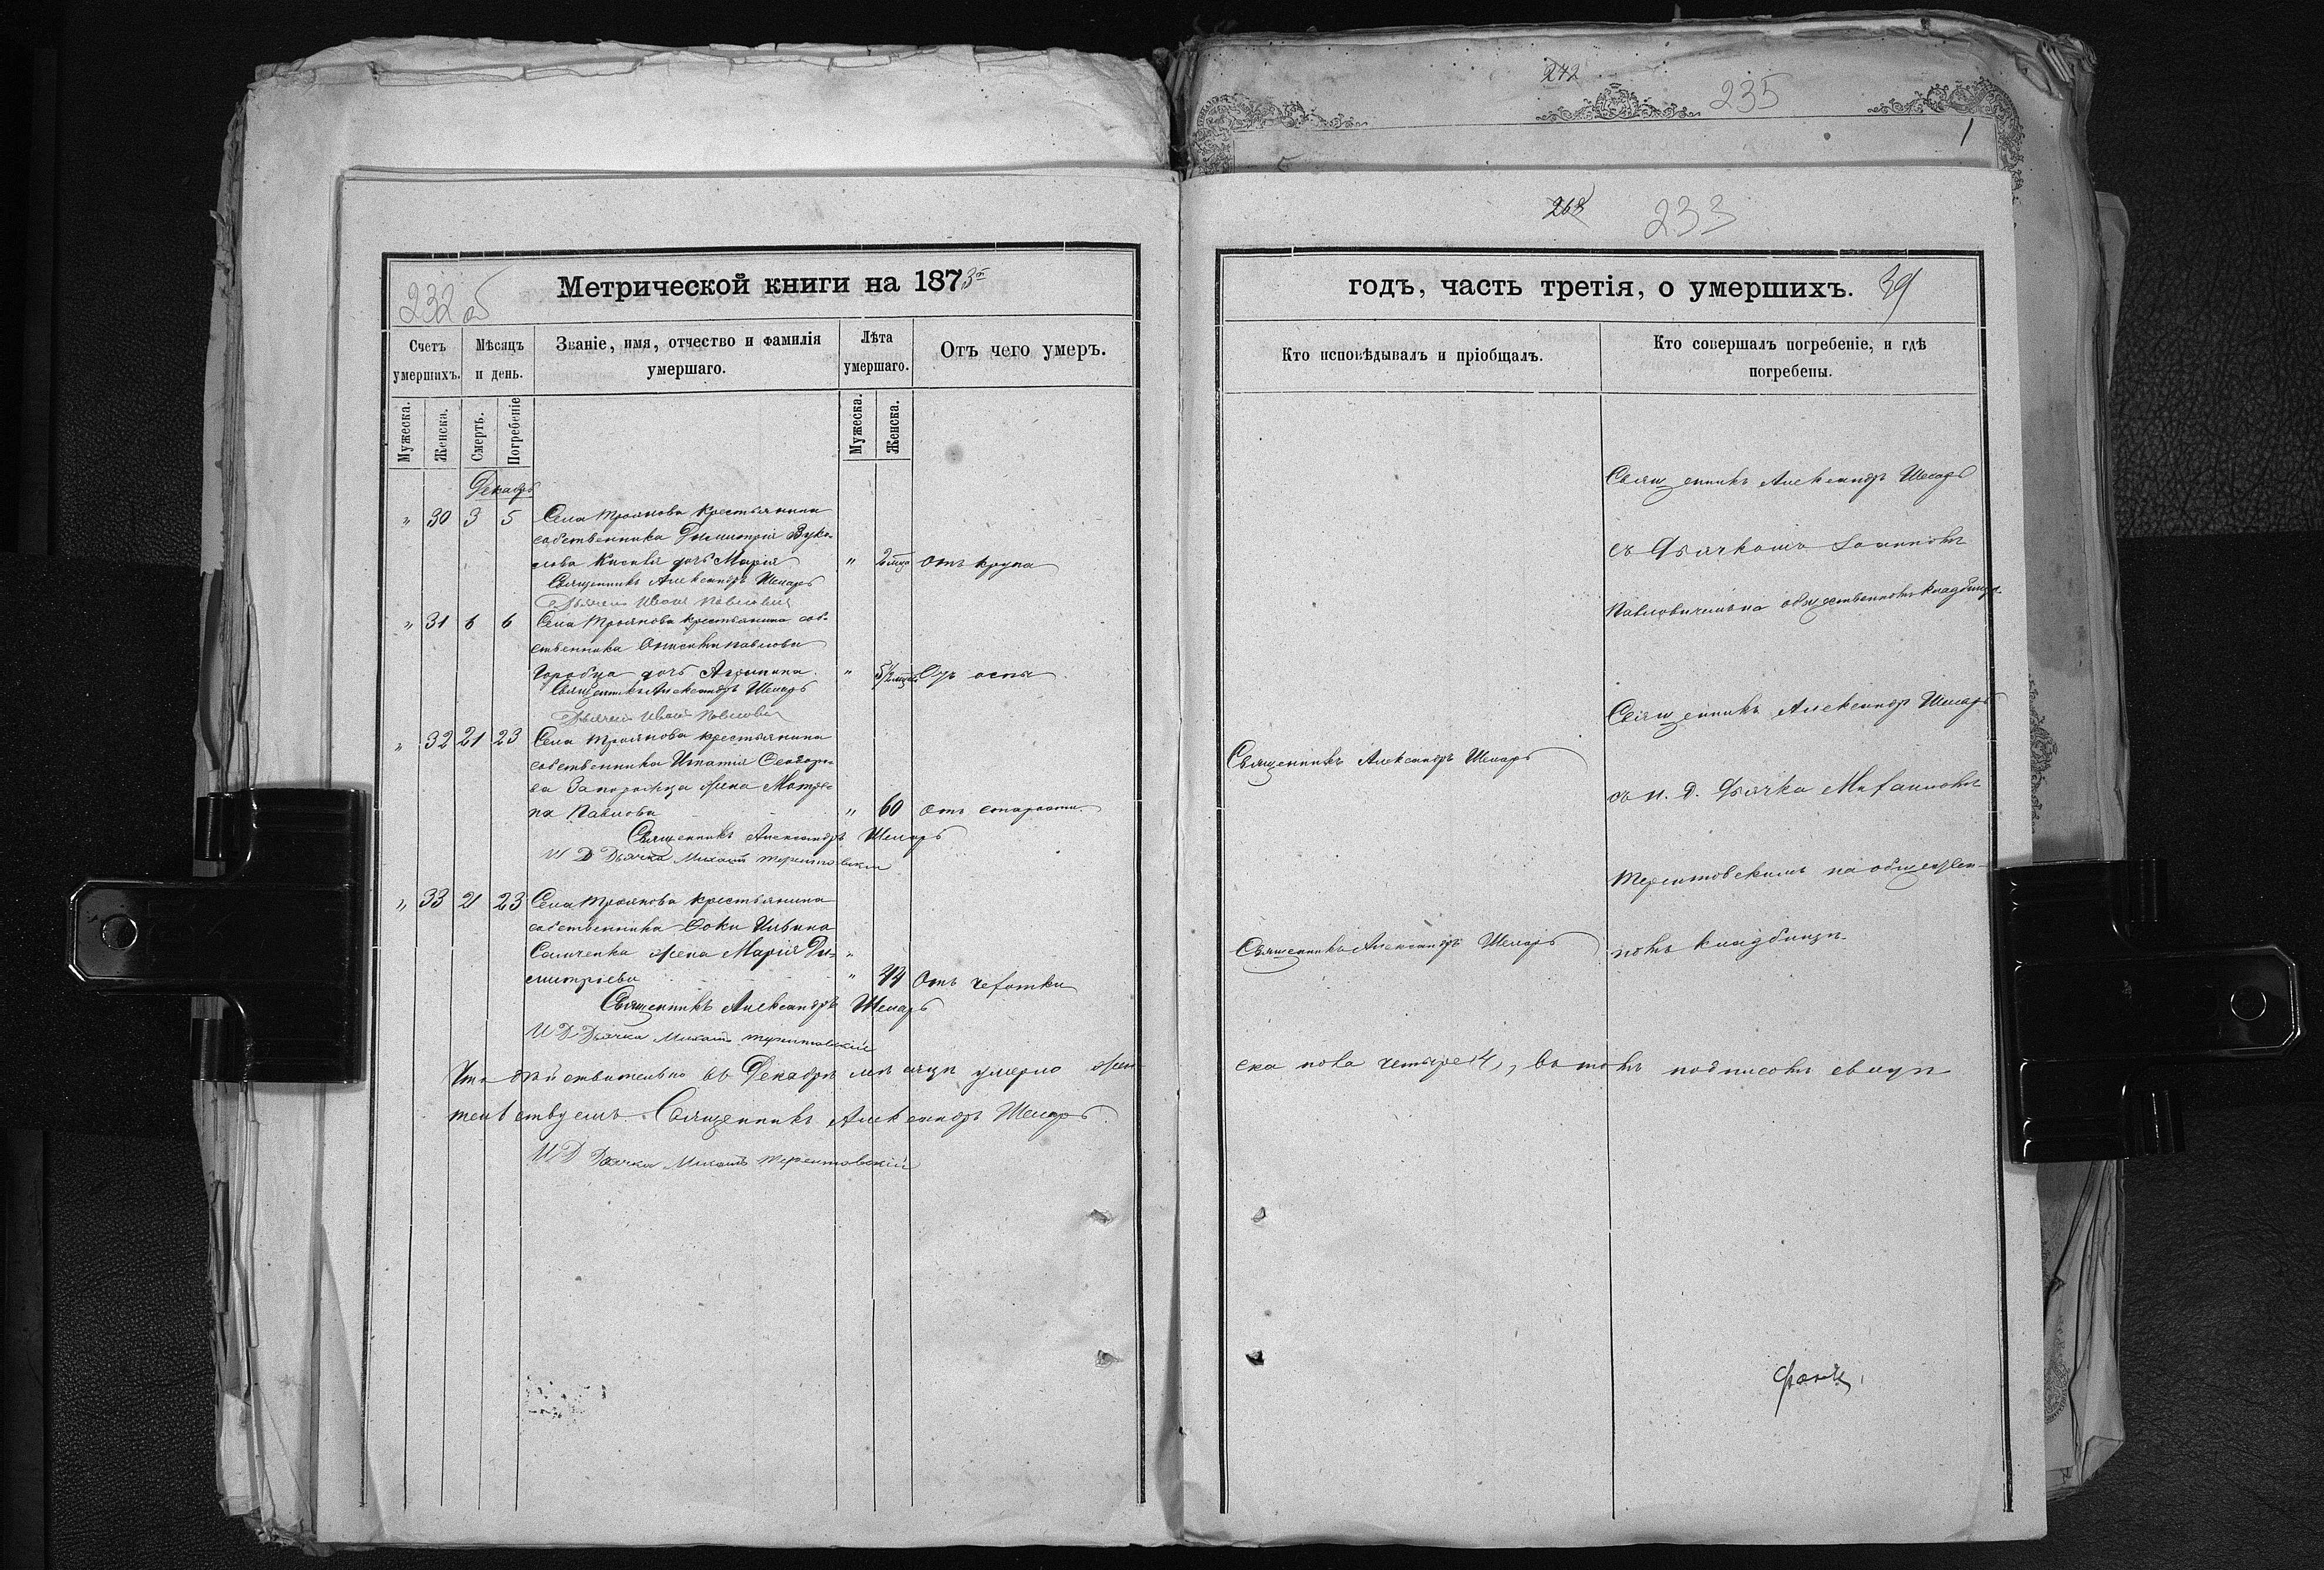 272
235
1
268
233
232 об
Метрической книги на 1873й
годъ, часть третія, о умершихъ. 39
Счетъ умершихъ.
Мѣсяцъ и день.
Званіе, имя, отчество и фамилія умершаго.
Лѣта умершаго.
Отъ чего умеръ.
Кто исповѣдывалъ и пріобщалъ.
Кто совершалъ погребеніе, и гдѣ погребены.
Мужеска.
Женска.
Смерть.
Погребеніе
Мужеска.
Женска.
Декабрь
" 30 3 5 Села Троянова крестьянина
собственника Димитрія Вуко-
лова дочь Марія " 2 мца Отъ крупа
Священникъ Александръ Шемаръ
Дьячекъ Иванъ Павловичъ
" 31 6 6 Села Троянова крестьянина соб-
ственника Павлова
Горобца дочь Агрипина " 5½ мцевъ Отъ оспы
Священникъ Александръ Шемаръ
Дьячекъ Иванъ Павловичъ
" 32 21 23 Села Троянова крестьянина
собственника Игнатія Феодоро-
ва Запорожца жена Матро-
на Павлова " 60 Отъ старости
Священникъ Александръ Шемаръ
И Д Дьячка Михаилъ
" 33 21 23 Села Троянова крестьянина
собственника Фоки Ильина
жена Марія Ди- "
митріева " 44 Отъ чехотки
Священникъ Александръ Шемаръ
И Д Дьячка Михаилъ
Что дѣйствительно въ Декабрѣ мѣсяцѣ умерло жен
теьствуемъ. Священникъ Александръ Шемаръ
И Д Дьячка Михаилъ
Священникъ Александръ Шемаръ
съ Дьячкомъ Іоанномъ
Павловичемъ на общественномъ кладбищѣ.
Священникъ Александръ Шемаръ
Священникъ Александръ Шемаръ
съ и. д. Дьячка Михаиломъ
на обществен-
Священникъ Александръ Шемаръ
номъ кладбищѣ
ска пола четыре (4), въ томъ подписомъ свидѣ